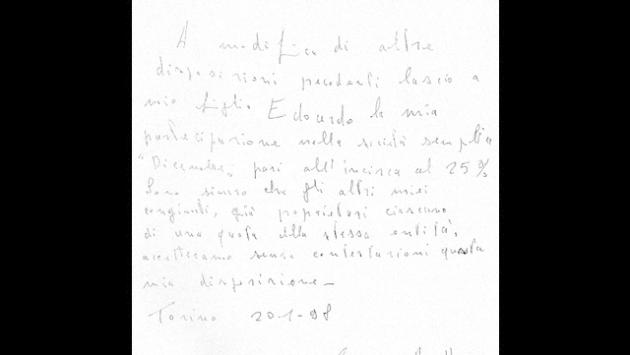 A modifica di altre
disposizioni precedenti lascio a
mio figlio Edoardo la mia
partecipazione nella società semplice
"Dicembre, pari all'incirca al 25%.
Sono sicuro che gli altri miei
congiunti, già proprietari ciascuno
di una quota della stessa entità,
accetteranno senza contestazioni questa
mia disposizione -
Torino 20-1-98